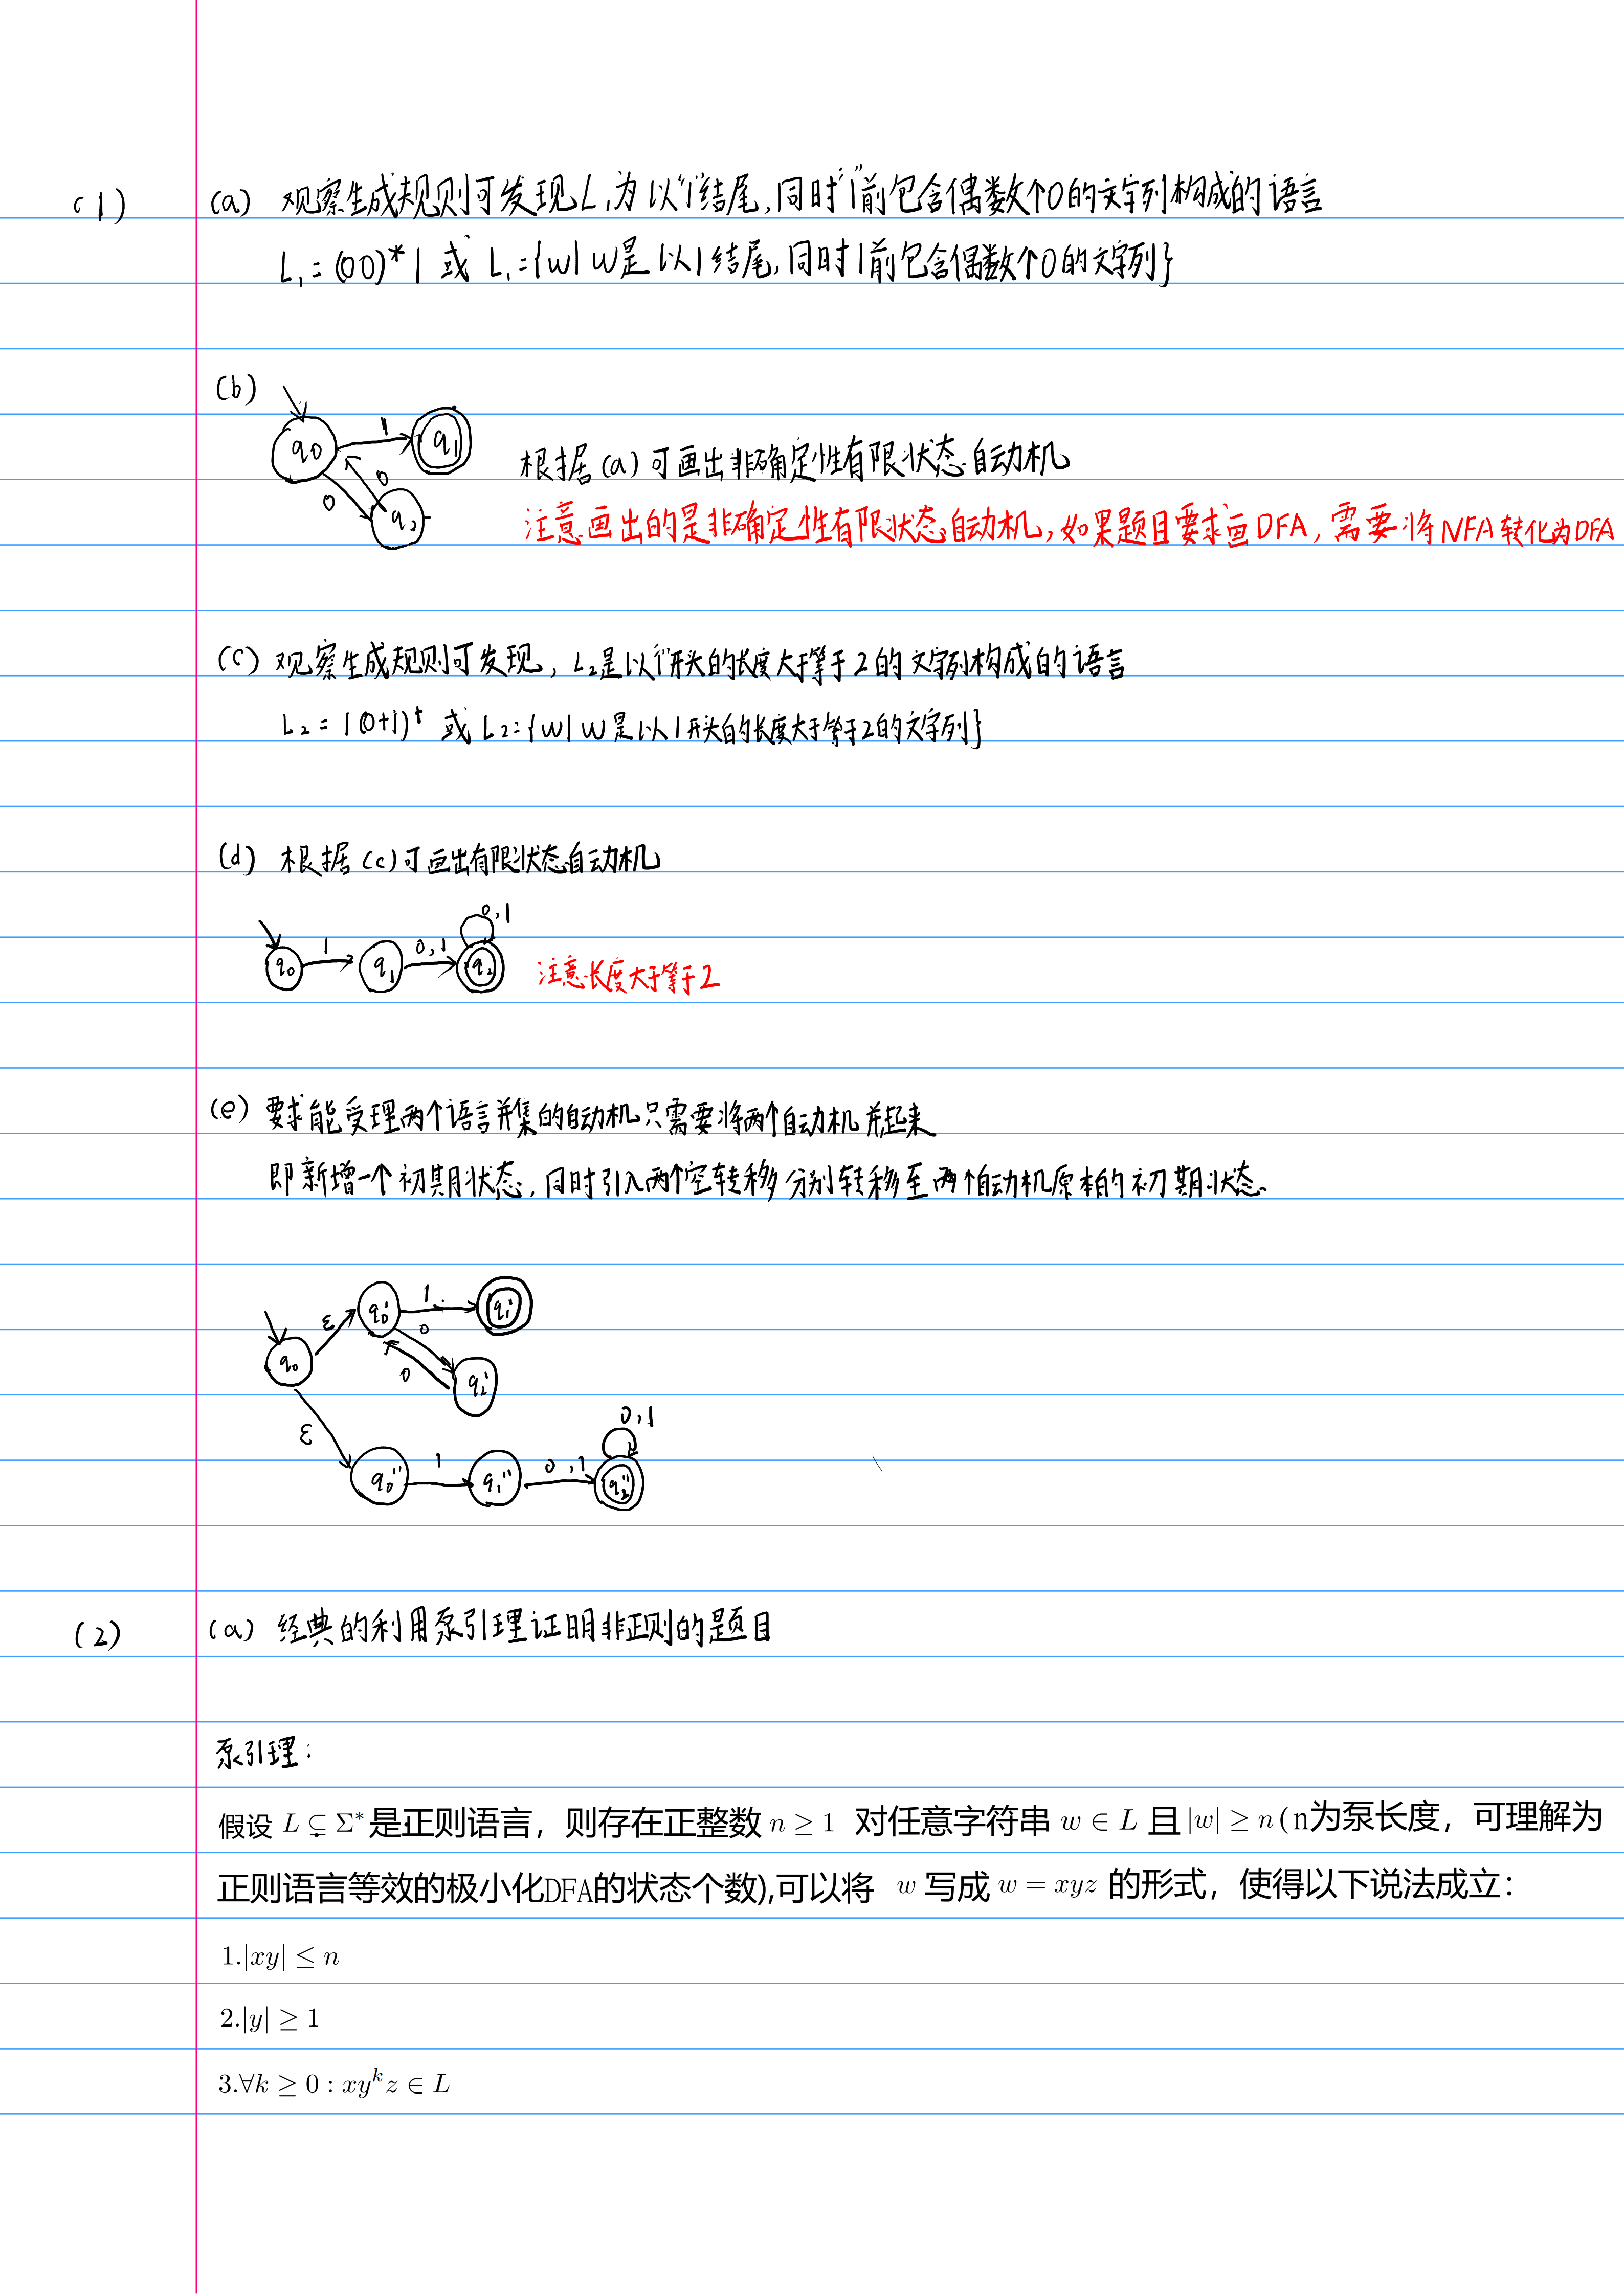 (1) (a) 观察生成规则可发现L₁为以"1"结尾,同时"1"前包含偶数个0的文字列构成的语言
L₁=(00)*1 或 L₁={w|w是以1结尾,同时1前包含偶数个0的文字列}
(b)
q0 1 q1
0 0 q2
根据(a)可画出非确定性有限状态自动机
注意画出的是非确定性有限状态自动机,如果题目要求画DFA,需要将NFA转化为DFA
(c) 观察生成规则可发现,L₂是以"1"开头的长度大于等于2的文字列构成的语言
L₂=1(0+1)⁺ 或 L₂={w|w是以1开头的长度大于等于2的文字列}
(d) 根据(c)可画出有限状态自动机
0,1
q₀ 1 q₁ 0,1 q₂
注意长度大于等于2
(e) 要求能受理两个语言并集的自动机只需要将两个自动机并起来
即新增一个初期状态,同时引入两个空转移分别转移至两个自动机原本的初期状态
q₀ ε q₀' 1 q₁'
0 0 q₂'
ε q₀'' 1 q₁'' 0,1 q₂''
0,1
(2) (a) 经典的利用泵引理证明非正则的题目
泵引理:
假设 L ⊆ Σ* 是正则语言，则存在正整数 n ≥ 1 对任意字符串 w ∈ L 且 |w| ≥ n (n为泵长度，可理解为
正则语言等效的极小化DFA的状态个数),可以将 w 写成 w = xyz 的形式，使得以下说法成立：
1.|xy| ≤ n
2.|y| ≥ 1
3.∀k ≥ 0 : xyᵏz ∈ L